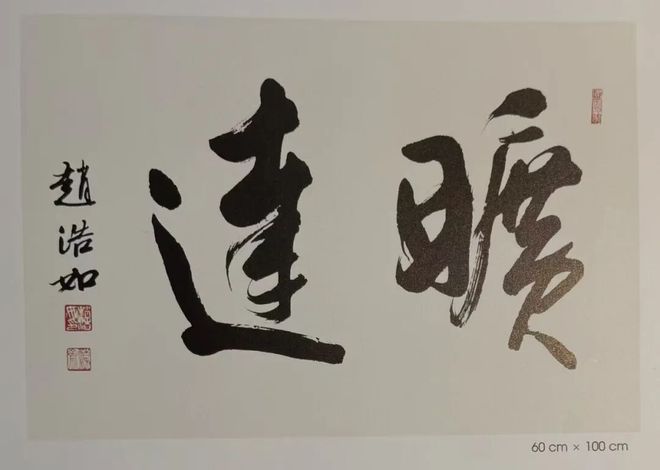 曠達
趙浩如
60 cm × 100 cm